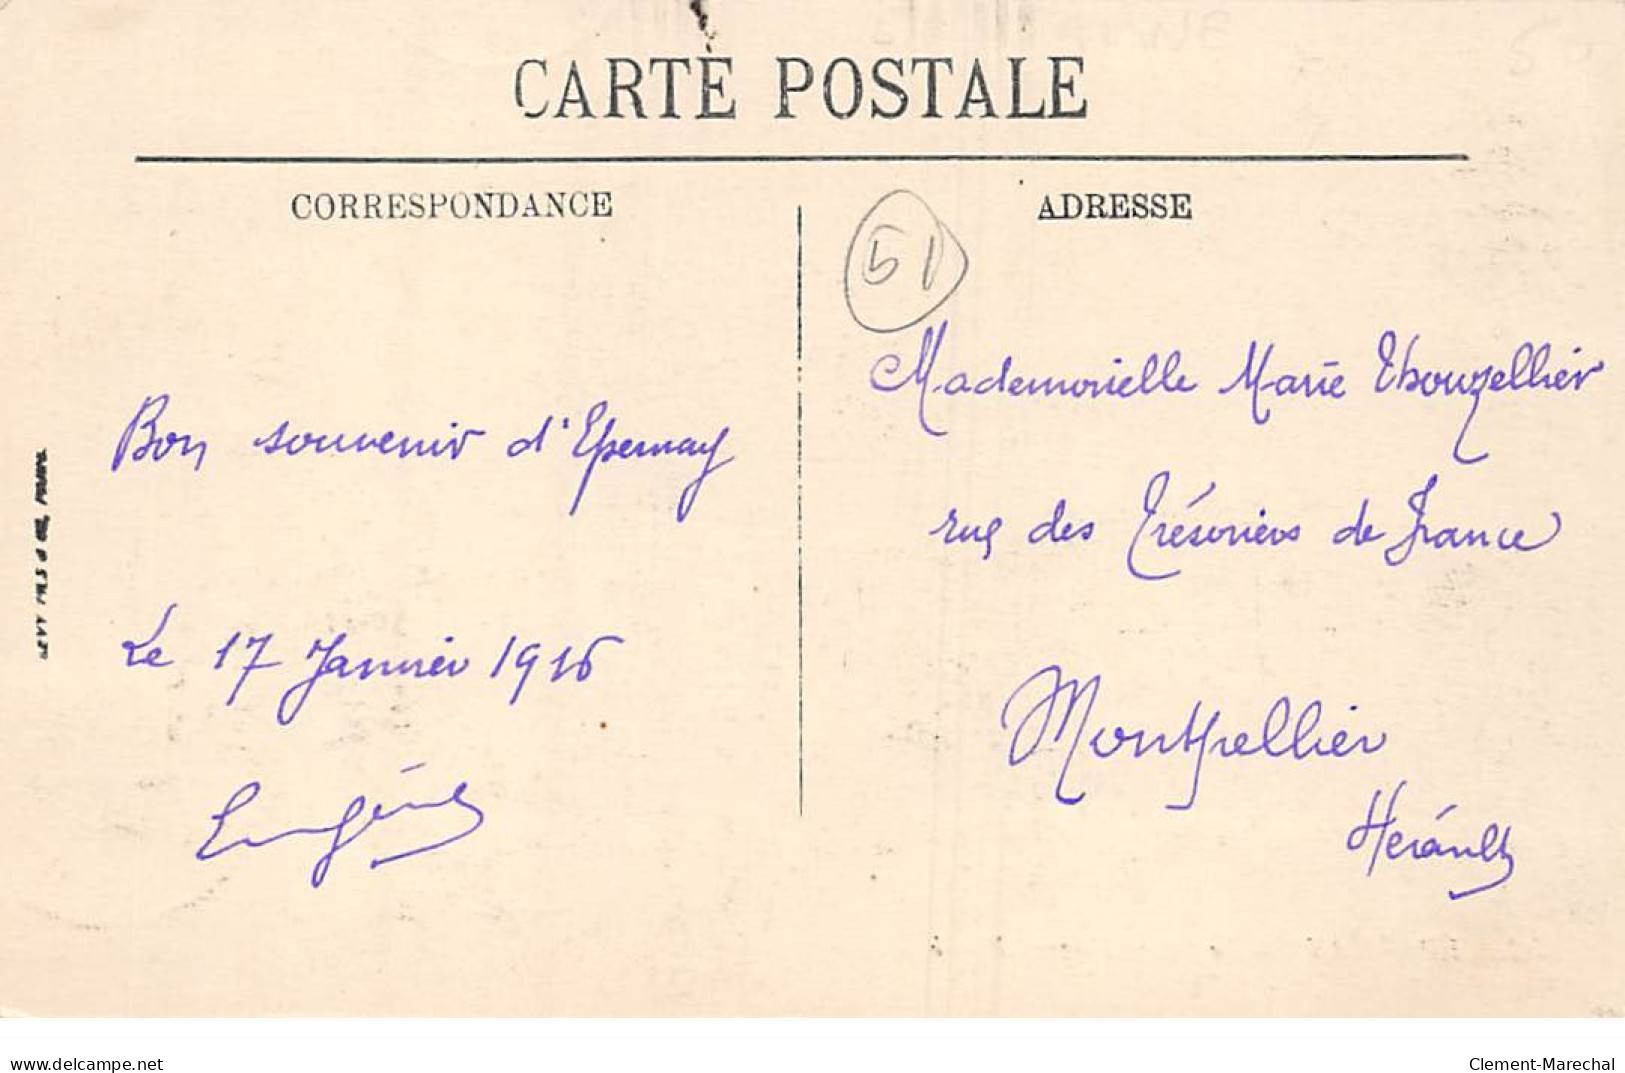 CARTE POSTALE
CORRESPONDANCE
ADRESSE
51
Bon souvenir d'Epernay
Le 17 Janvier 1916
Eugène
LEVY FILS & CIE, PARIS
Mademoiselle Marie Thouzellier
rue des Trésoriers de France
Montpellier
Hérault
www.delcampe.net
Clement-Marechal